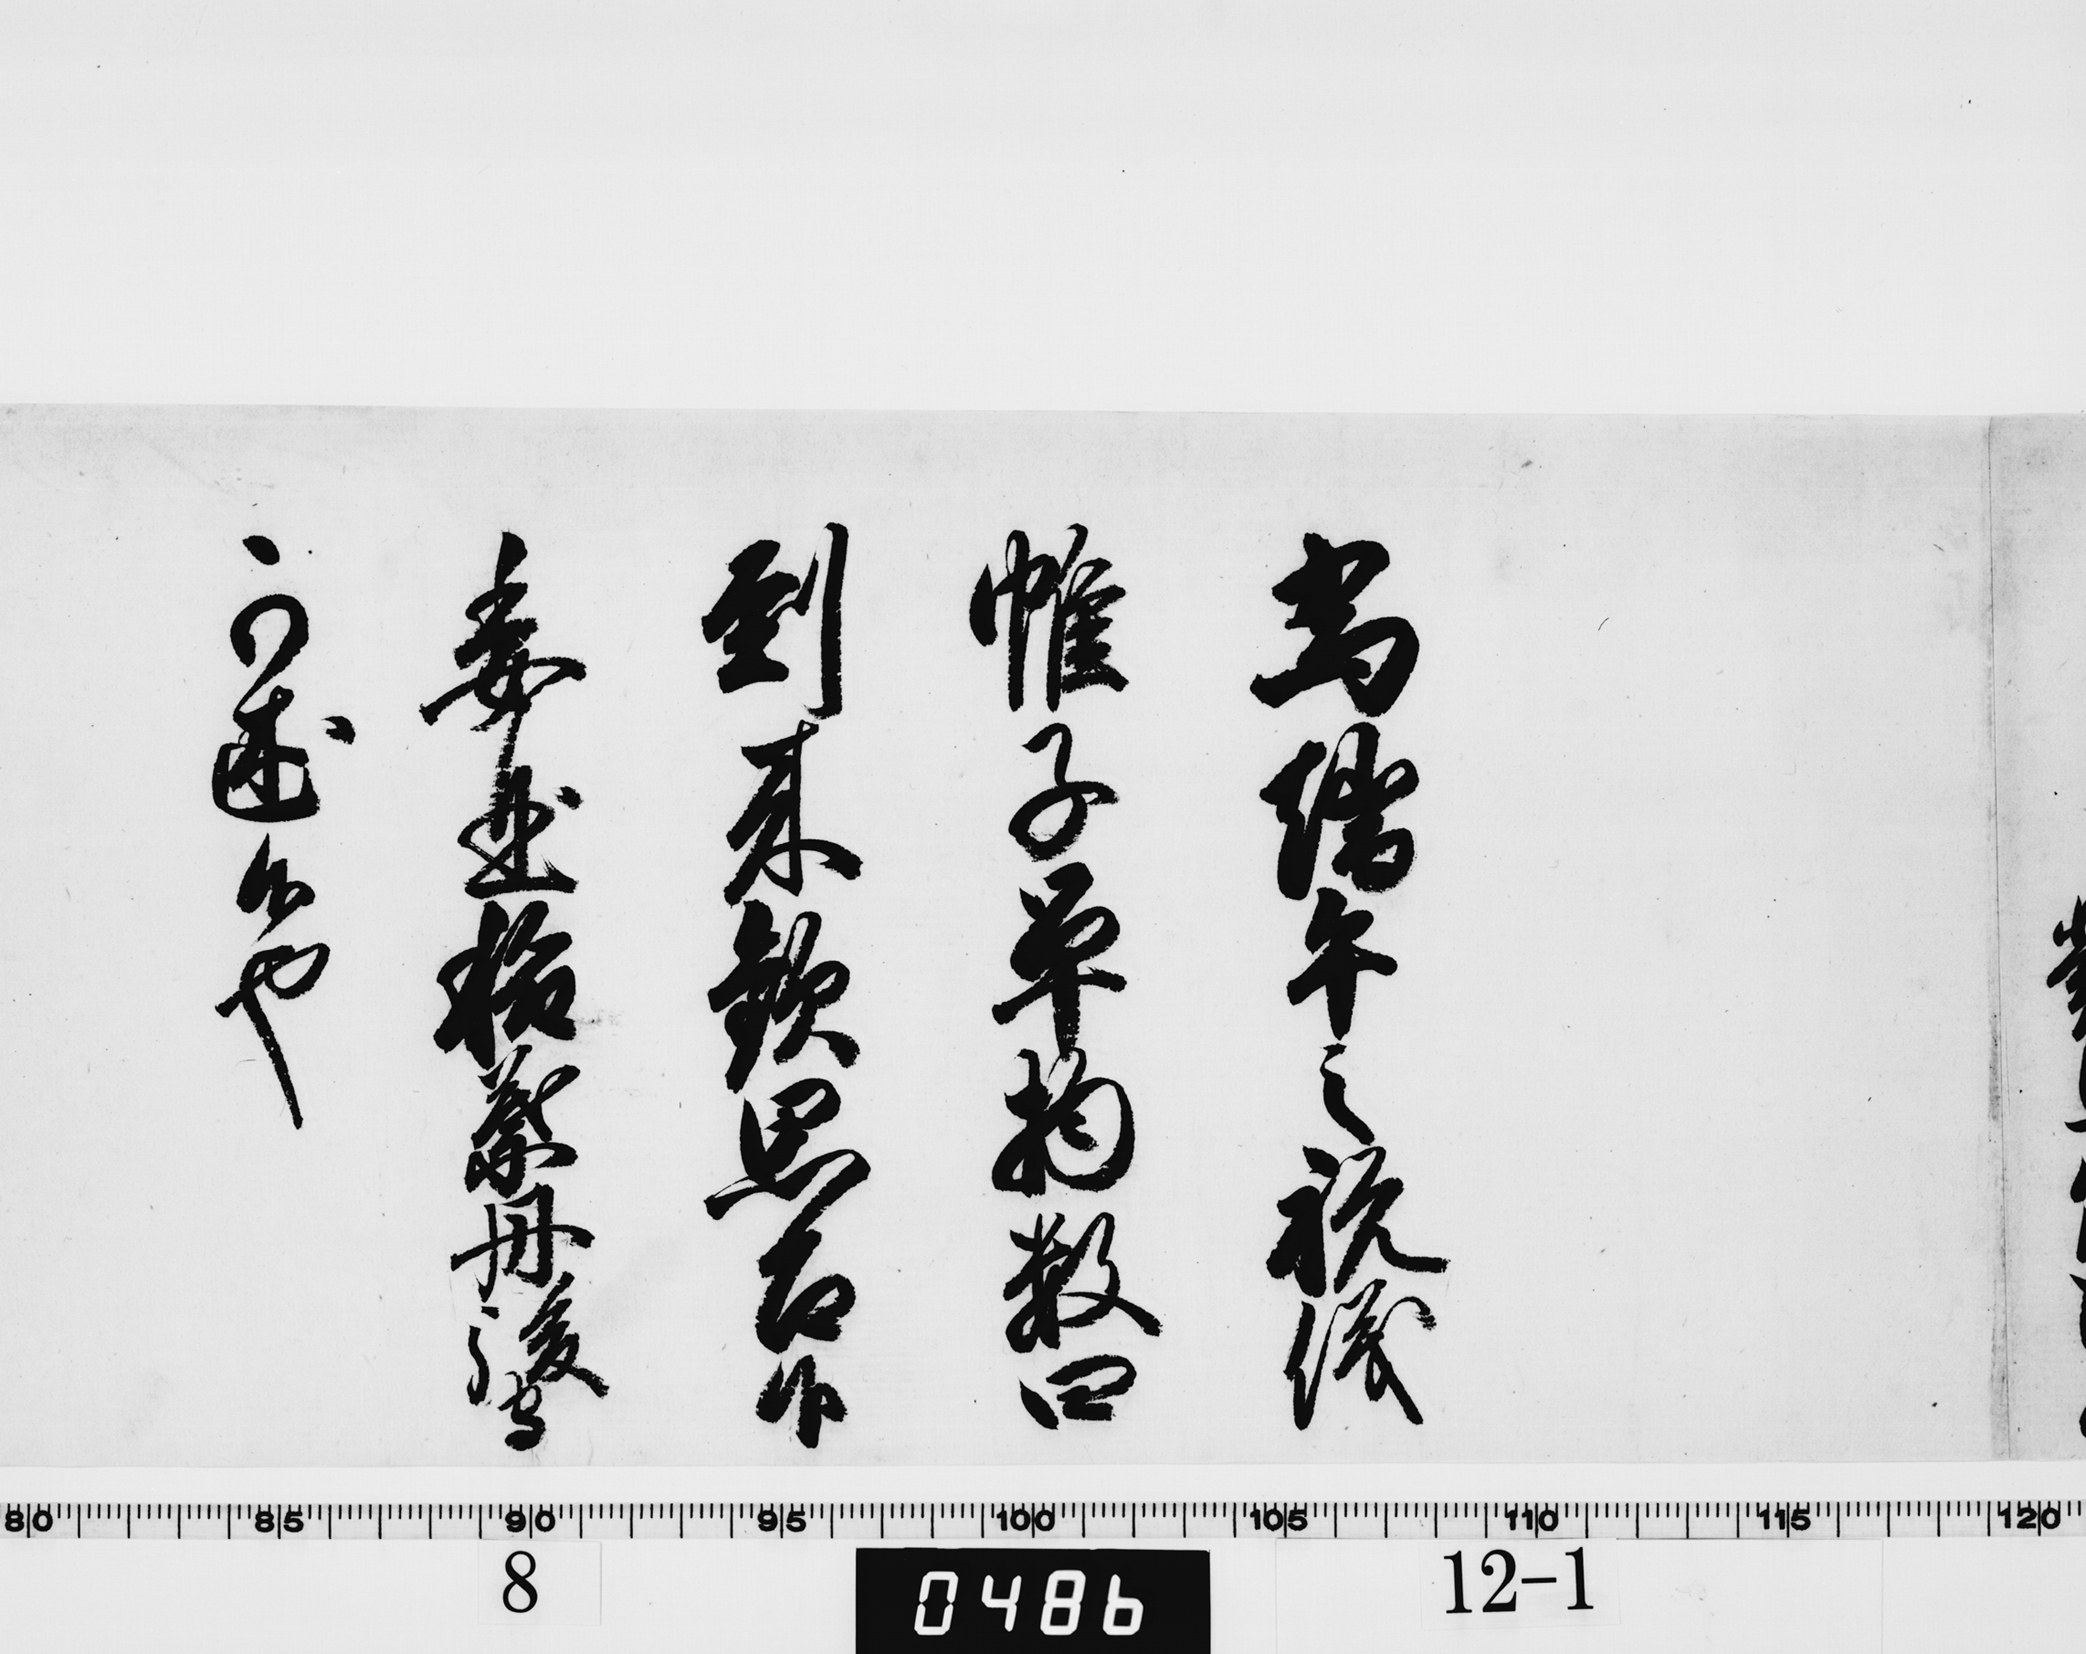 為端午之祝儀
帷子単物数四
到来歓思召候
委曲稲葉丹後守
可述候也
80 85 90 95 100 105 110 115 120
8 0486 12-1